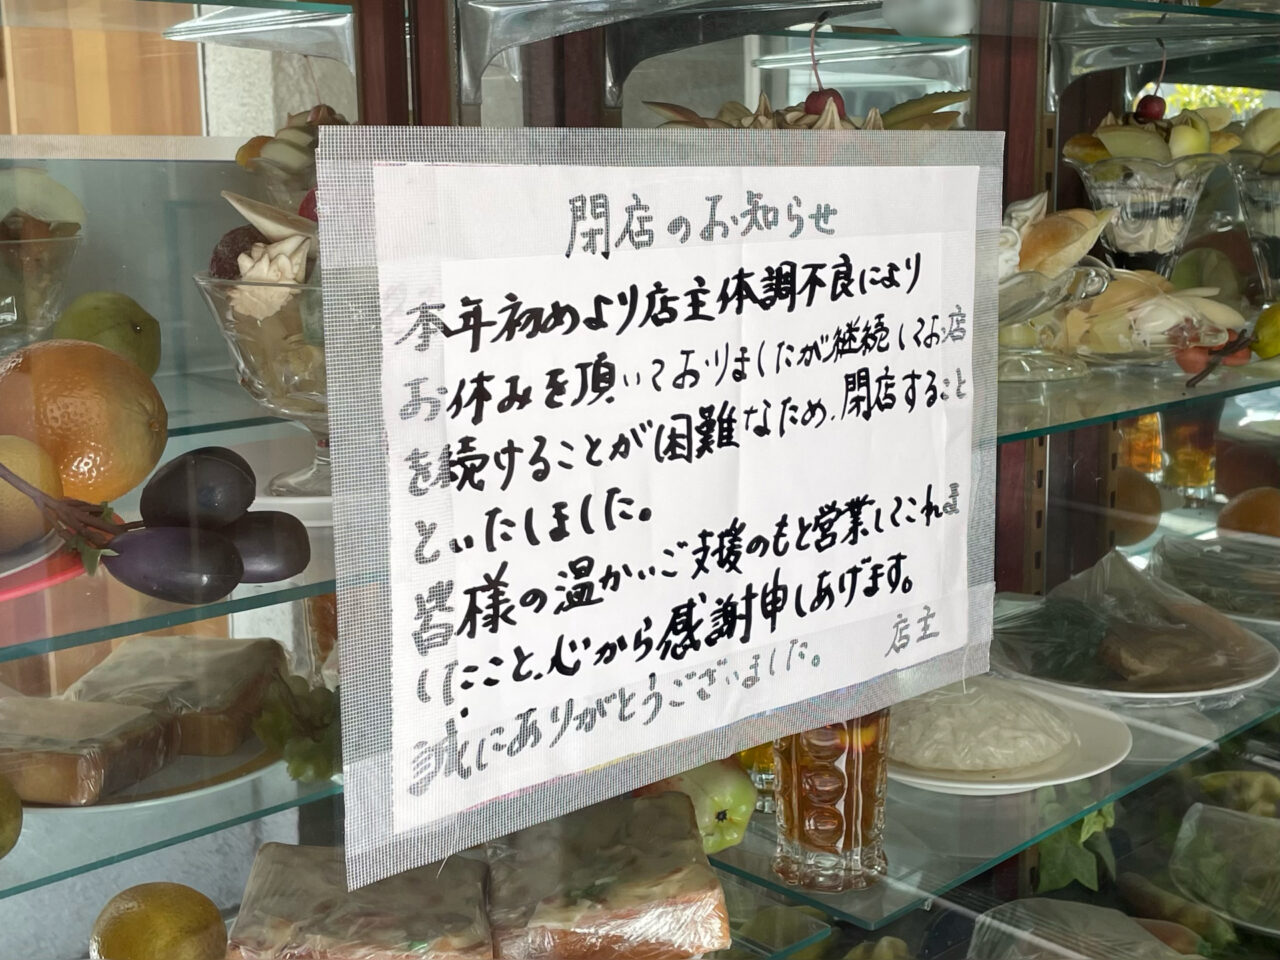 閉店のお知らせ
本年初めより店主体調不良により
お休みを頂いておりましたが継続してお店
を続けることが困難なため、閉店すること
といたしました。
皆様の温かいご支援のもと営業してこれま
したこと、心から感謝申しあげます。
誠にありがとうございました。
店主